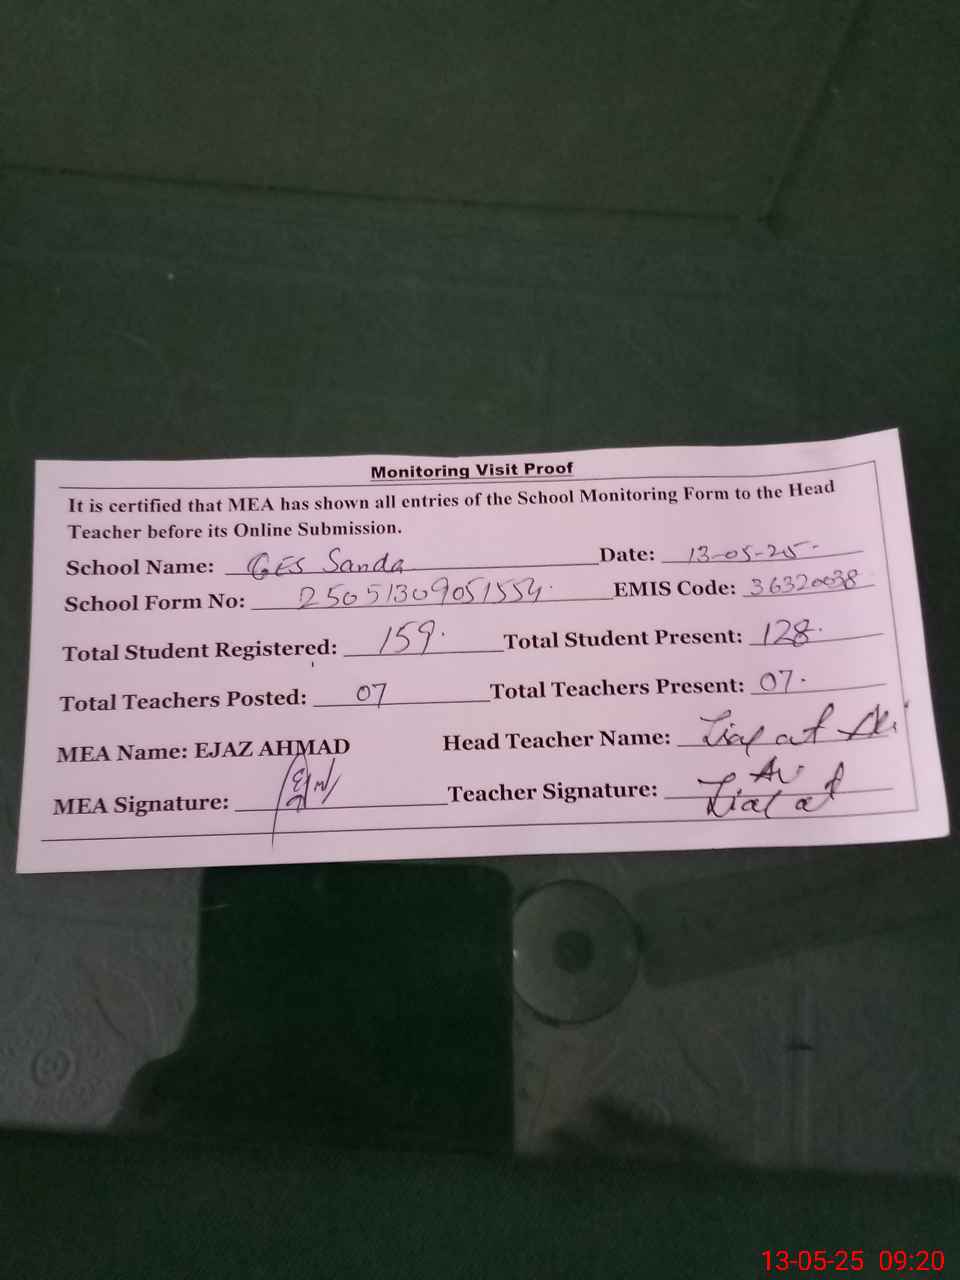 Monitoring Visit Proof
It is certified that MEA has shown all entries of the School Monitoring Form to the Head
Teacher before its Online Submission.
School Name: GES Sanda Date: 13-05-25
School Form No: 25051309051554 EMIS Code: 36320038
Total Student Registered: 159 Total Student Present: 128
Total Teachers Posted: 07 Total Teachers Present: 07
MEA Name: EJAZ AHMAD Head Teacher Name: Liaqat Ali
MEA Signature: Teacher Signature: Liaqat
13-05-25 09:20